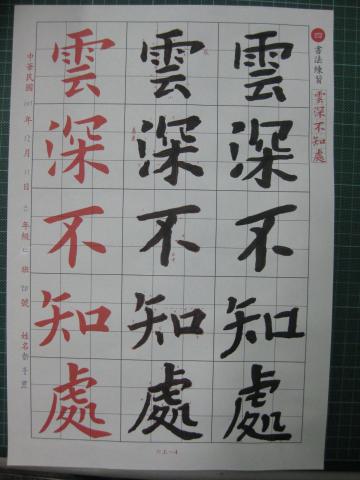 四 書法練習 雲深不知處
雲深不知處
雲深不知處
雲深不知處
中華民國 年 月 日 年級 班 號 姓名
六上-4